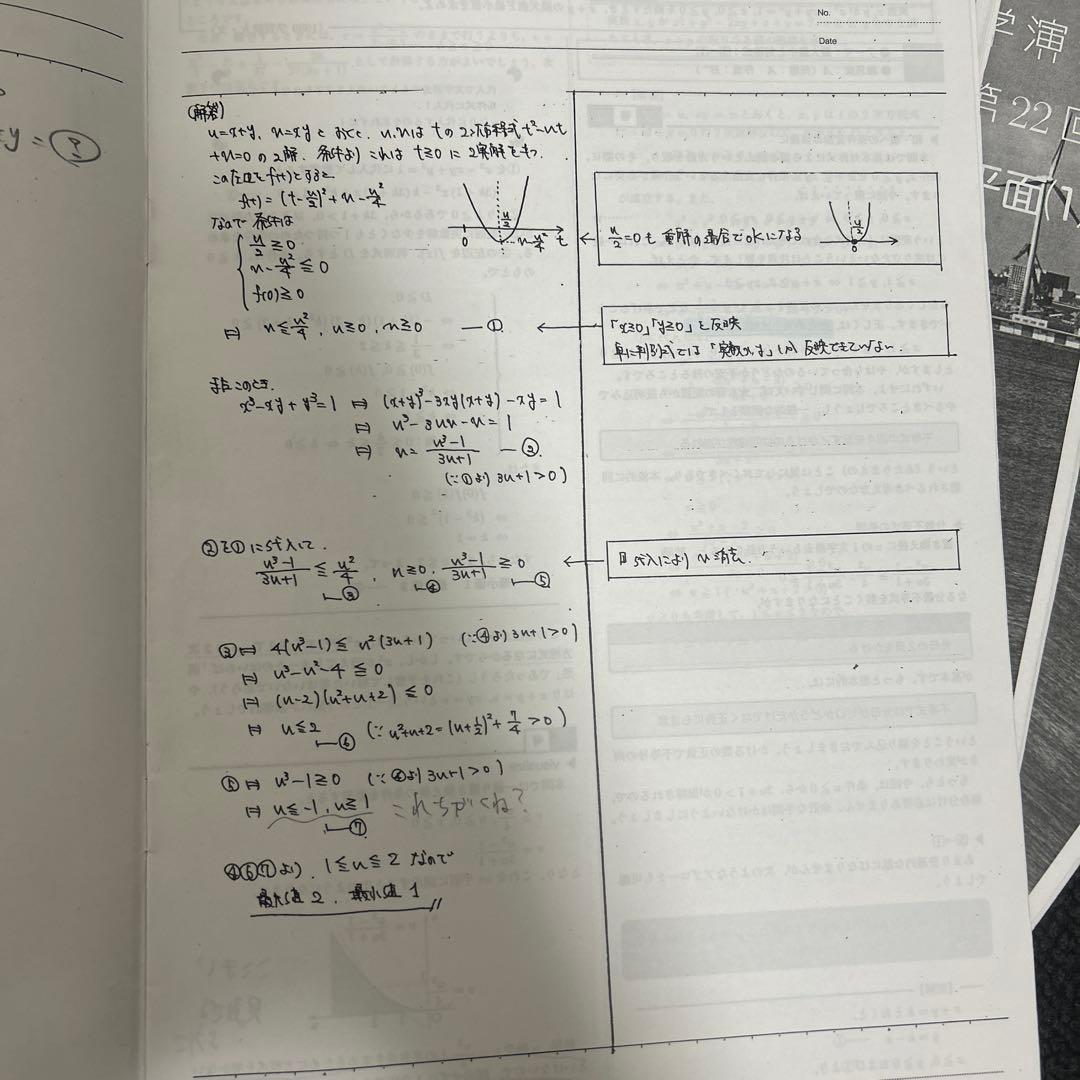 No.
Date
学演
第22回
平面(1)
y=?
(解答)
u=x+y, v=xyとおくと、x,yはtの2次方程式t²-ut
+v=0の2解. 条件よりこれはt≧0に2実解をもつ
この左辺をf(t)とすると
f(t)=(t-u/2)²+v-u²/4
なので条件は
u/2≧0
v-u²/4≦0
f(0)≧0
⇔ v≦u²/4, u≧0, v≧0 —①
0 u/2 v-u²/4 t
← u/2=0も重解の場合でokになる
u/2
0
←「x≧0」「y≧0」を反映
単に判別式では「実数x,y」しか反映できていない.
またこのとき.
x³-xy+y³=1 ⇔ (x+y)³-3xy(x+y)-xy=1
⇔ u³-3uv-v=1
⇔ v=u³-1/3u+1 —②
(∵①より3u+1>0)
②を①に代入して.
u³-1/3u+1≦u²/4, u≧0, u³-1/3u+1≧0
③ ④ ⑤
← 代入によりv消去.
③⇔ 4(u³-1)≦u²(3u+1) (∵④より3u+1>0)
⇔ u³-u²-4≦0
⇔ (u-2)(u²+u+2)≦0
⇔ u≦2 (∵u²+u+2=(u+1/2)²+7/4>0)
⑥
⑤⇔ u³-1≧0 (∵④より3u+1>0)
⇔ u≦-1, u≧1 これちがくね?
⑦
④⑥⑦より, 1≦u≦2なので
最大値2, 最小値1